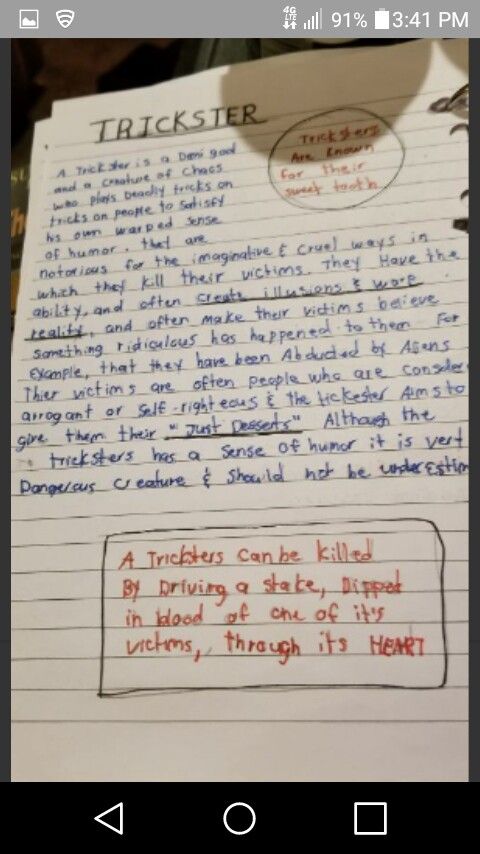 4G
LTE
91%
3:41 PM
TRICKSTER
Tricksters
Are Known
for their
sweet tooth
A Trickster is a Demi good
and a creature of Chaos
who plays Deadly tricks on
tricks on people to satisfy
his own warped sense
of humor. that are
notorious for the imaginative & Cruel ways in
which they kill their victims. They Have the
ability, and often create illusions & warp
reality, and often make their victims believe
something ridiculous has happened to them For
Example, that they have been Abducted by Aliens
Thier victims are often people who are consider
arrogant or Self-righteous & the tickester Aims to
give them their "Just Desserts" Although the
tricksters has a sense of humor it is vert
Dangerous creature & should not be underestim
A Tricksters can be killed
By Driving a stake, Dipped
in blood of one of it's
victims, through its HEART